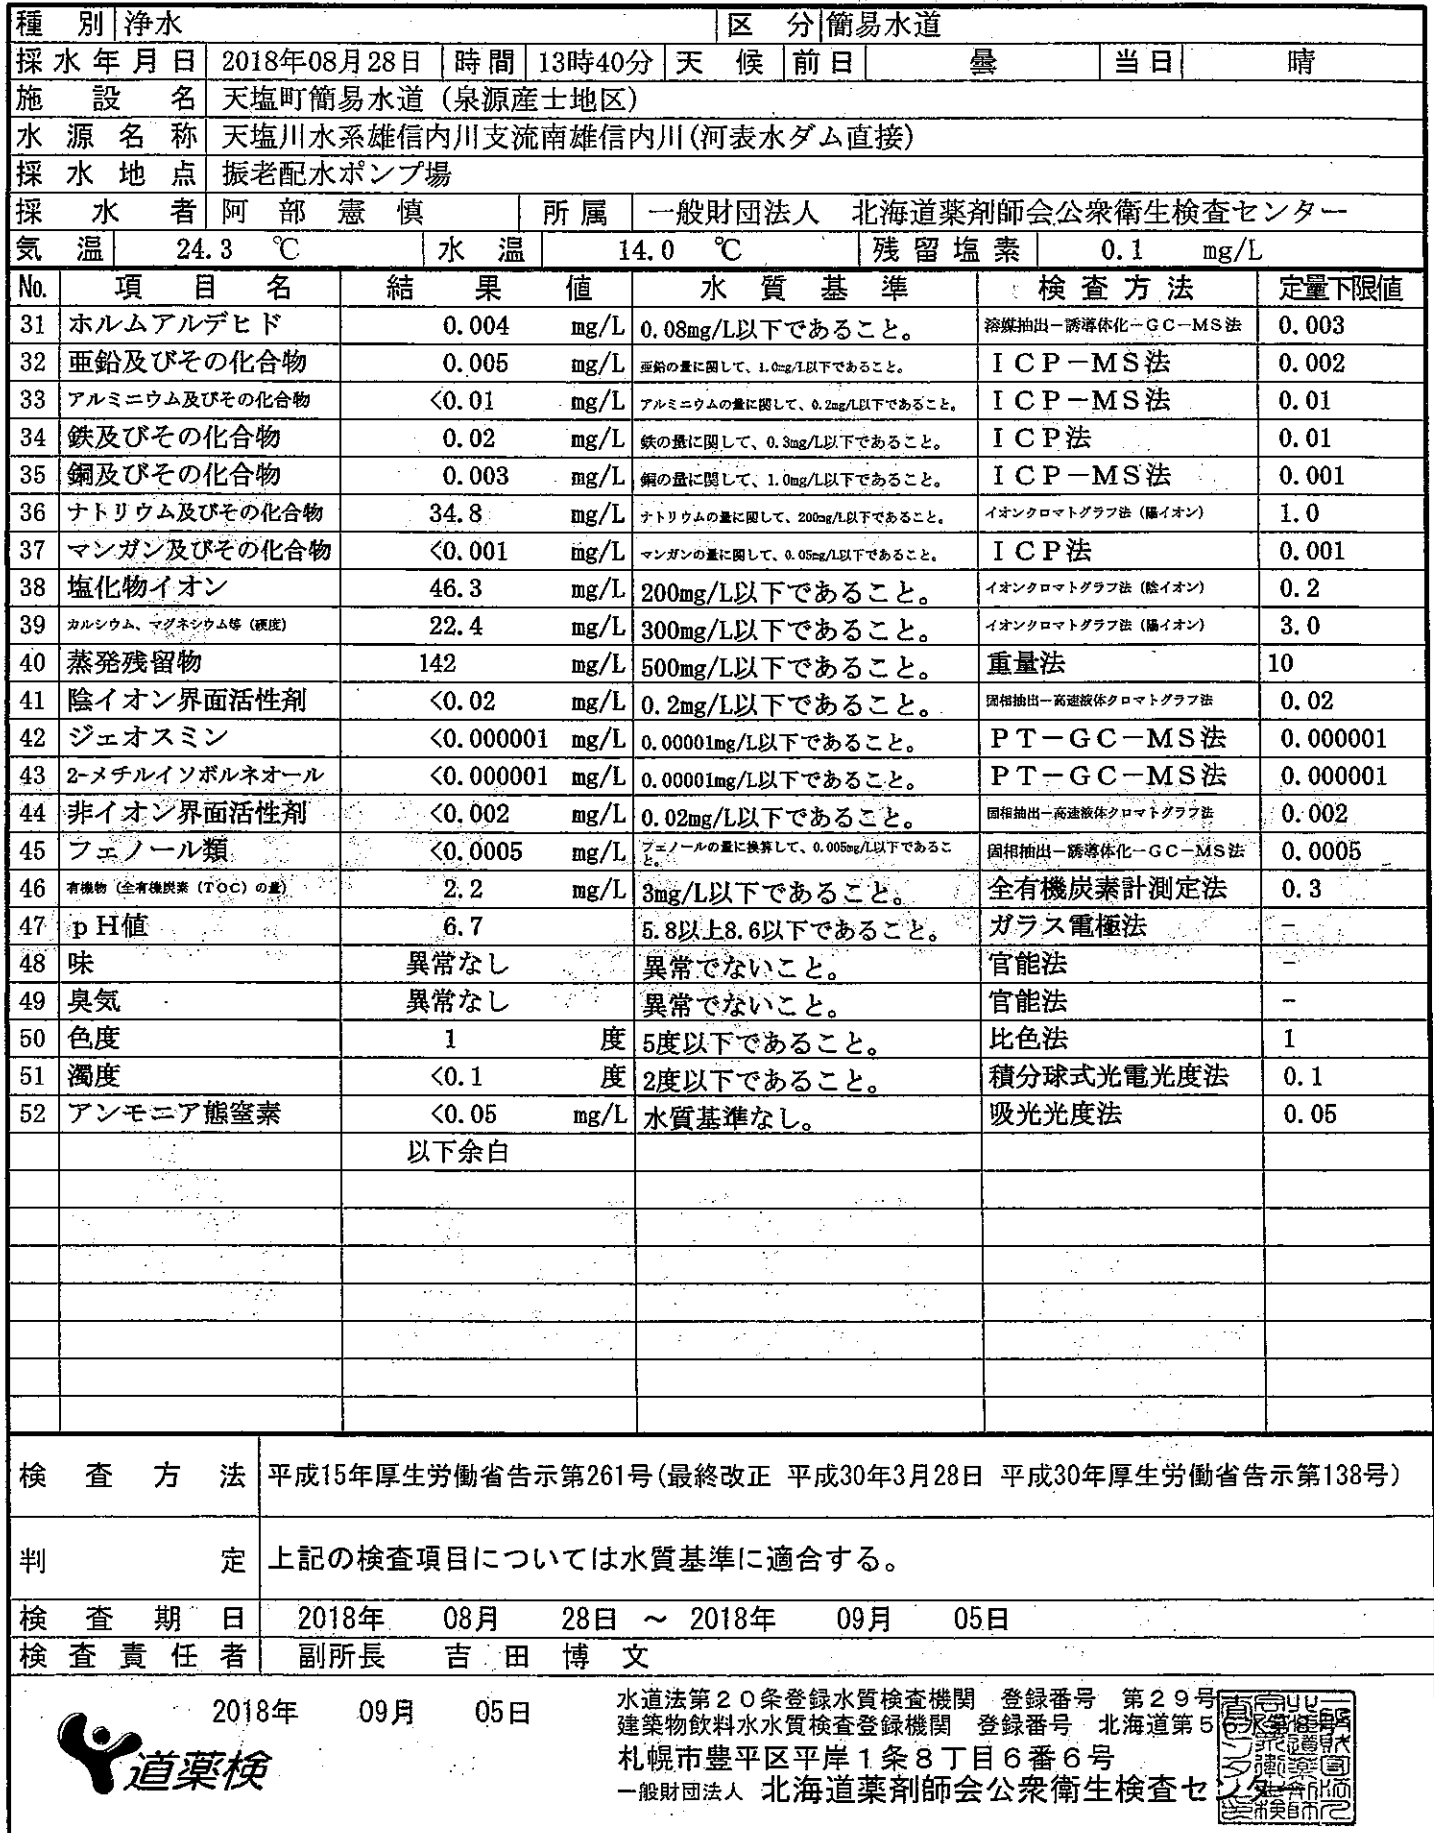 種別 浄水 区分 簡易水道
採水年月日 2018年08月28日 時間 13時40分 天候 前日 曇 当日 晴
施設名 天塩町簡易水道（泉源産士地区）
水源名称 天塩川水系雄信内川支流南雄信内川(河表水ダム直接)
採水地点 振老配水ポンプ場
採水者 阿部憲慎 所属 一般財団法人 北海道薬剤師会公衆衛生検査センター
気温 24.3 ℃ 水温 14.0 ℃ 残留塩素 0.1 mg/L
No. 項目名 結果値 水質基準 検査方法 定量下限値
31 ホルムアルデヒド 0.004 mg/L 0.08mg/L以下であること。 溶媒抽出－誘導体化－GC－MS法 0.003
32 亜鉛及びその化合物 0.005 mg/L 亜鉛の量に関して、1.0mg/L以下であること。 ICP－MS法 0.002
33 アルミニウム及びその化合物 <0.01 mg/L アルミニウムの量に関して、0.2mg/L以下であること。 ICP－MS法 0.01
34 鉄及びその化合物 0.02 mg/L 鉄の量に関して、0.3mg/L以下であること。 ICP法 0.01
35 銅及びその化合物 0.003 mg/L 銅の量に関して、1.0mg/L以下であること。 ICP－MS法 0.001
36 ナトリウム及びその化合物 34.8 mg/L ナトリウムの量に関して、200mg/L以下であること。 イオンクロマトグラフ法（陽イオン） 1.0
37 マンガン及びその化合物 <0.001 mg/L マンガンの量に関して、0.05mg/L以下であること。 ICP法 0.001
38 塩化物イオン 46.3 mg/L 200mg/L以下であること。 イオンクロマトグラフ法（陰イオン） 0.2
39 カルシウム、マグネシウム等（硬度） 22.4 mg/L 300mg/L以下であること。 イオンクロマトグラフ法（陽イオン） 3.0
40 蒸発残留物 142 mg/L 500mg/L以下であること。 重量法 10
41 陰イオン界面活性剤 <0.02 mg/L 0.2mg/L以下であること。 固相抽出－高速液体クロマトグラフ法 0.02
42 ジェオスミン <0.000001 mg/L 0.00001mg/L以下であること。 PT－GC－MS法 0.000001
43 2-メチルイソボルネオール <0.000001 mg/L 0.00001mg/L以下であること。 PT－GC－MS法 0.000001
44 非イオン界面活性剤 <0.002 mg/L 0.02mg/L以下であること。 固相抽出－高速液体クロマトグラフ法 0.002
45 フェノール類 <0.0005 mg/L フェノールの量に換算して、0.005mg/L以下であること。 固相抽出－誘導体化－GC－MS法 0.0005
46 有機物（全有機炭素（TOC）の量） 2.2 mg/L 3mg/L以下であること。 全有機炭素計測定法 0.3
47 pH値 6.7 5.8以上8.6以下であること。 ガラス電極法 －
48 味 異常なし 異常でないこと。 官能法 －
49 臭気 異常なし 異常でないこと。 官能法 －
50 色度 1 度 5度以下であること。 比色法 1
51 濁度 <0.1 度 2度以下であること。 積分球式光電光度法 0.1
52 アンモニア態窒素 <0.05 mg/L 水質基準なし。 吸光光度法 0.05
以下余白
検査方法 平成15年厚生労働省告示第261号(最終改正 平成30年3月28日 平成30年厚生労働省告示第138号)
判定 上記の検査項目については水質基準に適合する。
検査期日 2018年 08月 28日 ～ 2018年 09月 05日
検査責任者 副所長 吉田博文
2018年 09月 05日
水道法第２０条登録水質検査機関 登録番号 第２９号
建築物飲料水水質検査登録機関 登録番号 北海道第５
札幌市豊平区平岸１条８丁目６番６号
一般財団法人 北海道薬剤師会公衆衛生検査センター
道薬検